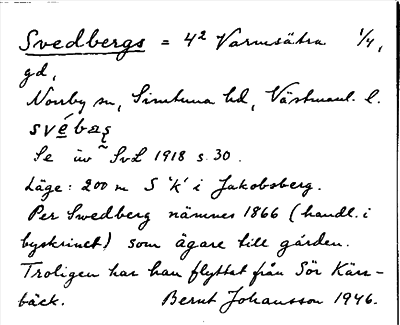 Svedbergs = 4² Varmsätra 1/4,
gd,
Norrby sn, Simtuna hd, Västmanl. l.
Se äv SvL 1918 s. 30.
Läge: 200 m S 'k' i Jakobsberg.
Per Swedberg nämnes 1866 (handl. i
byskrinet) som ägare till gården.
Troligen har han flyttat från Sör Kärr-
bäck. Bernt Johansson 1946.